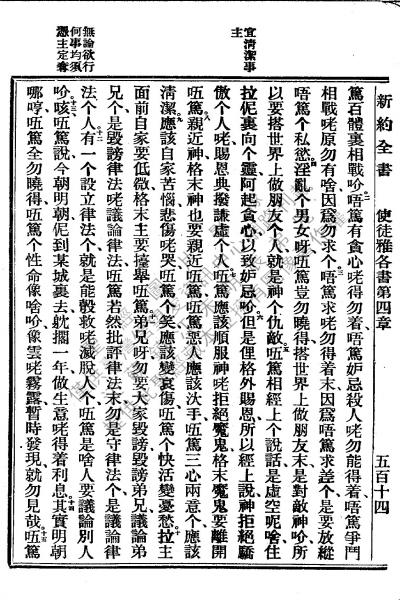 新約全書 使徒雅各書第四章 五百十四
宜清潔事
主
無論欲行
何事均須
憑主定奪
篤百體裏相戰吤二唔篤有貪心咾得勿着唔篤妒忌殺人咾勿能得着唔篤爭鬥
相戰咾原勿有啥因爲勿求個三唔篤求咾勿得着末因爲唔篤求差個是要放縱
唔篤個私慾四淫亂個男女呀㕶篤豈勿曉得搭世界上做朋友末是對敵神吤所
以要搭世界上做朋友個人就是神個仇敵五㕶篤相經上個說話是虛空呢啥住
拉伲裏向個靈阿起貪心以致妒忌吤六但是俚格外賜恩所以經上說神拒絕驕
傲個人咾賜恩典撥謙虛個人七㕶篤應該順服神咾拒絕魔鬼格末魔鬼要離開
㕶篤八親近神格末神也要親近㕶篤㕶篤惡人應該汏手㕶篤三心兩意個應該
清潔九應該自家苦惱悲傷咾哭㕶篤個笑應該變哀傷㕶篤個快活變憂愁十拉主
面前自家要低微格末主要擡舉㕶篤十一弟兄呀勿要大家毀謗毀謗弟兄議論弟
兄個是毀謗律法咾議論律法㕶篤若然批評律法末勿是守律法個是議論律
法個人十二有一個設立律法個就是能彀救咾滅脫人個㕶篤是啥人要議論別人
吤十三咳㕶篤說今朝明朝伲到某城裏去躭擱一年做生意咾得着利息十四其實明朝
哪哼㕶篤全勿曉得㕶篤個性命像啥吤像雲咾霧露暫時發現就勿見哉十五㕶篤